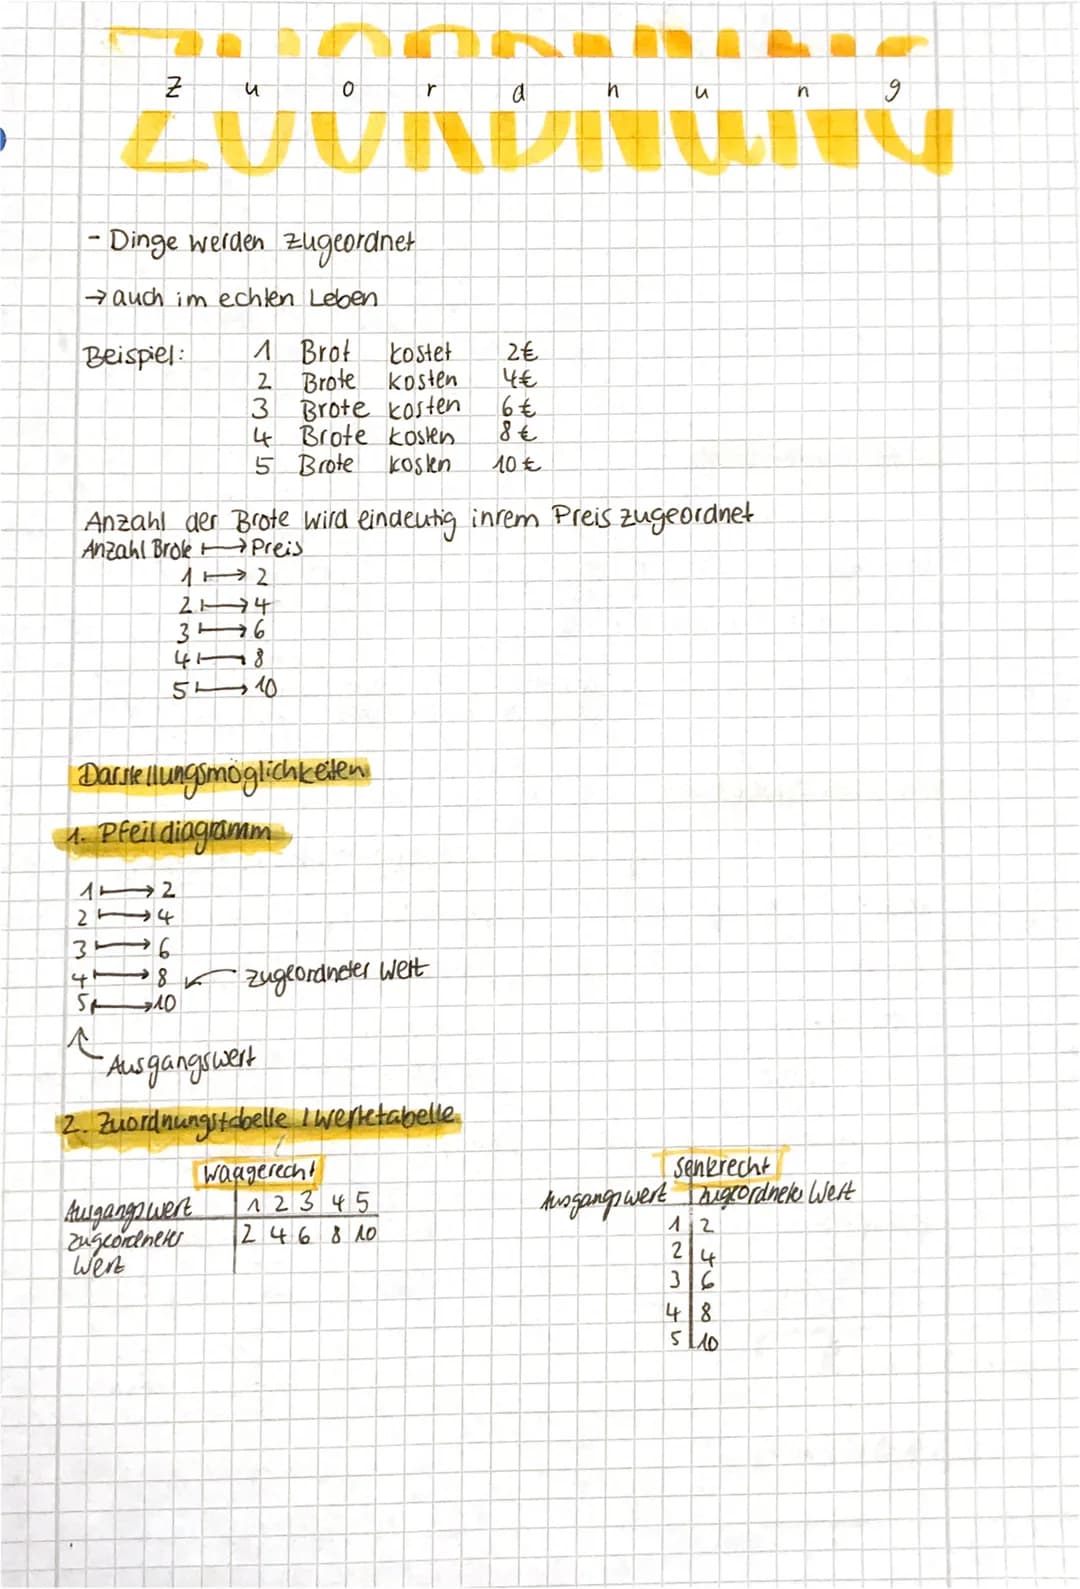 ZUORDNUNG
Zuordnung
- Dinge werden zugeordnet
→ auch im echten Leben
Beispiel: 1 Brot kostet 2€
2 Brote kosten 4€
3 Brote kosten 6€
4 Brote kosten 8€
5 Brote kosten 10€
Anzahl der Brote wird eindeutig ihrem Preis zugeordnet
Anzahl Brote ↦ Preis
1 ↦ 2
2 ↦ 4
3 ↦ 6
4 ↦ 8
5 ↦ 10
Darstellungsmöglichkeiten
1. Pfeildiagramm
1 ↦ 2
2 ↦ 4
3 ↦ 6
4 ↦ 8 ↙ zugeordneter Wert
5 ↦ 10
Ausgangswert
2. Zuordnungstabelle / Wertetabelle
waagerecht
Ausgangswert 1 2 3 4 5
zugeordneter 2 4 6 8 10
Wert
senkrecht
Ausgangswert zugeordneter Wert
1 2
2 4
3 6
4 8
5 10